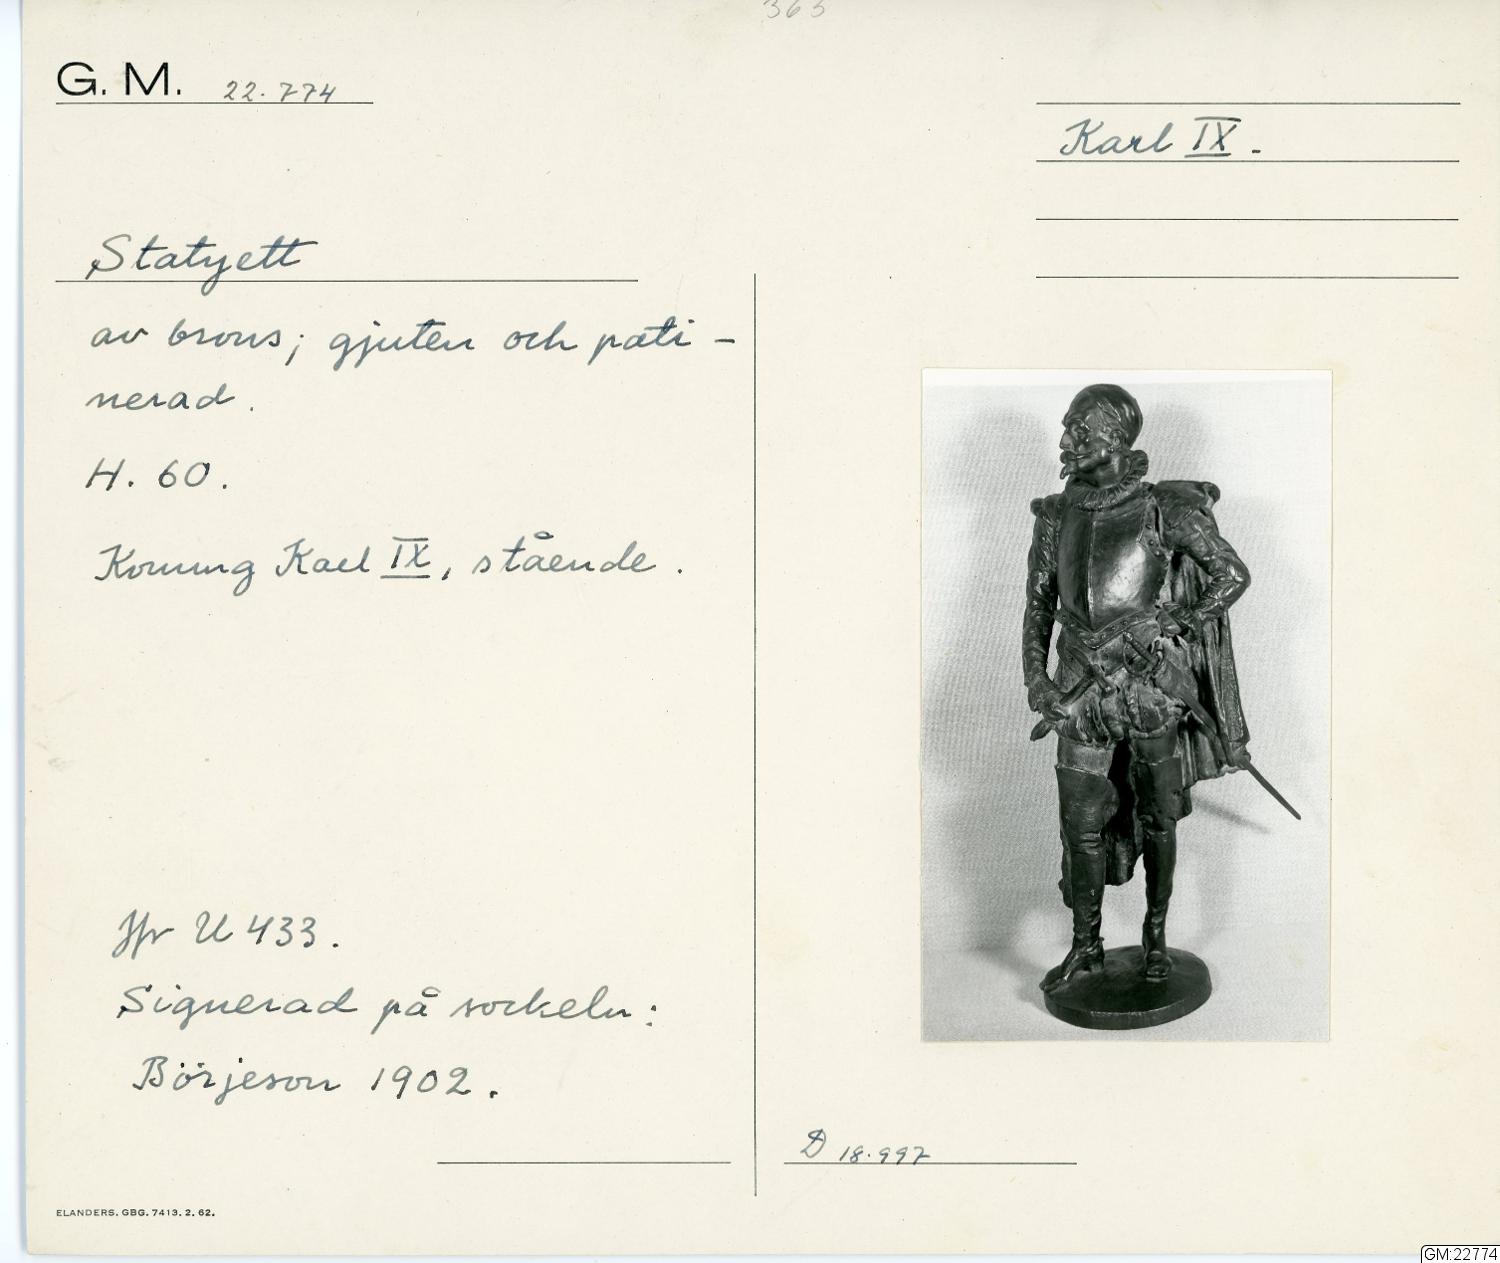 363
G. M. 22.774
Karl IX.
Statyett
av brons; gjuten och pati-
nerad.
H. 60.
Konung Karl IX, stående.
Jfr U 433.
Signerad på sockeln:
Börjeson 1902.
D 18.997
ELANDERS. GBG. 7413. 2. 62.
GM:22774